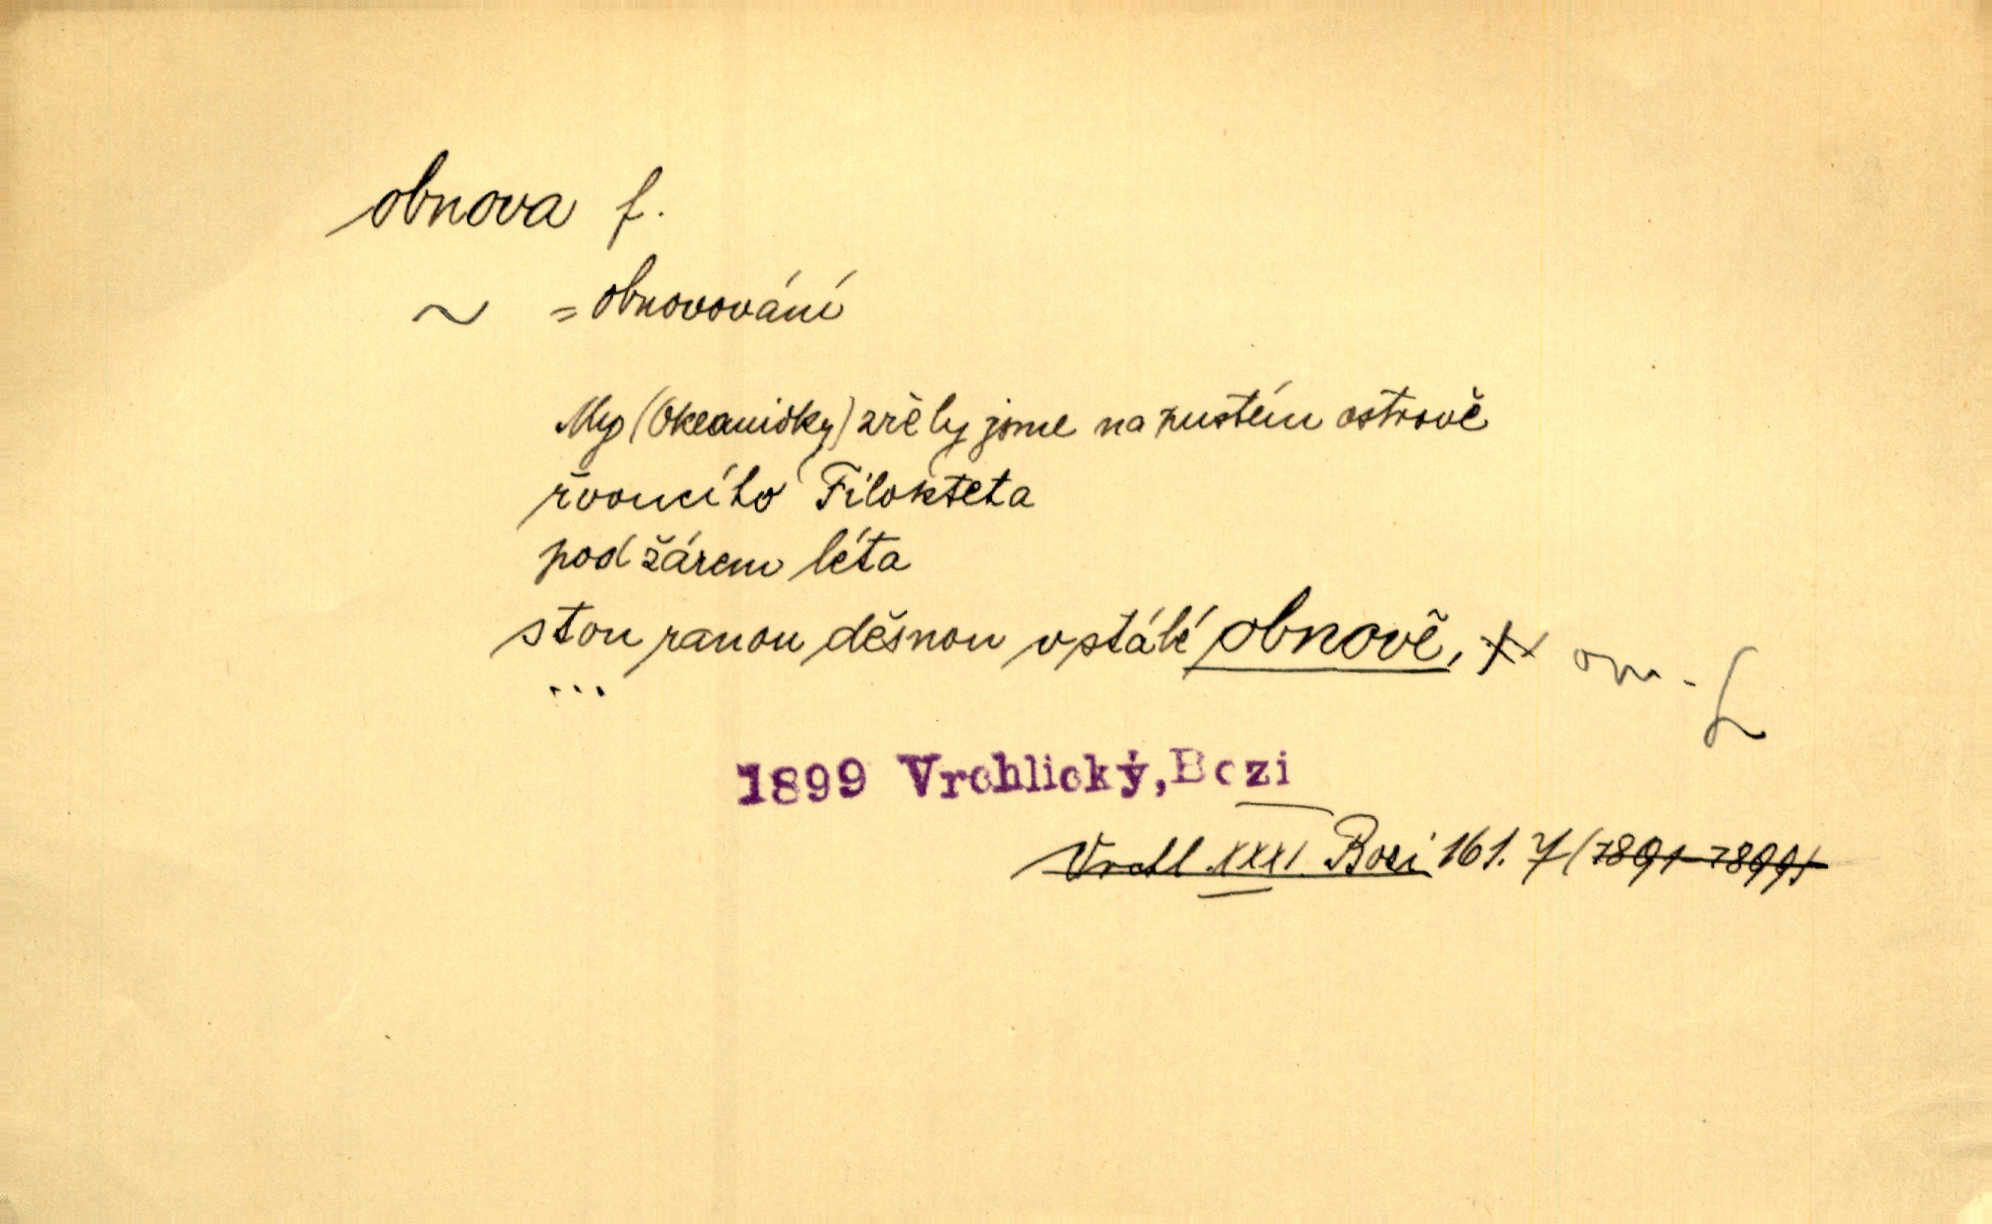 obnova f.
~ = obnovování
My (Okeanidky) zřely jsme na pustém ostrově
řvoucího Filokteta
pod žárem léta
s tou ranou děsnou v stálé obnově,
...
1899 Vrchlický, Bozi
Vrchl. XXXI. Bozi 161. 7 (1891-1899)